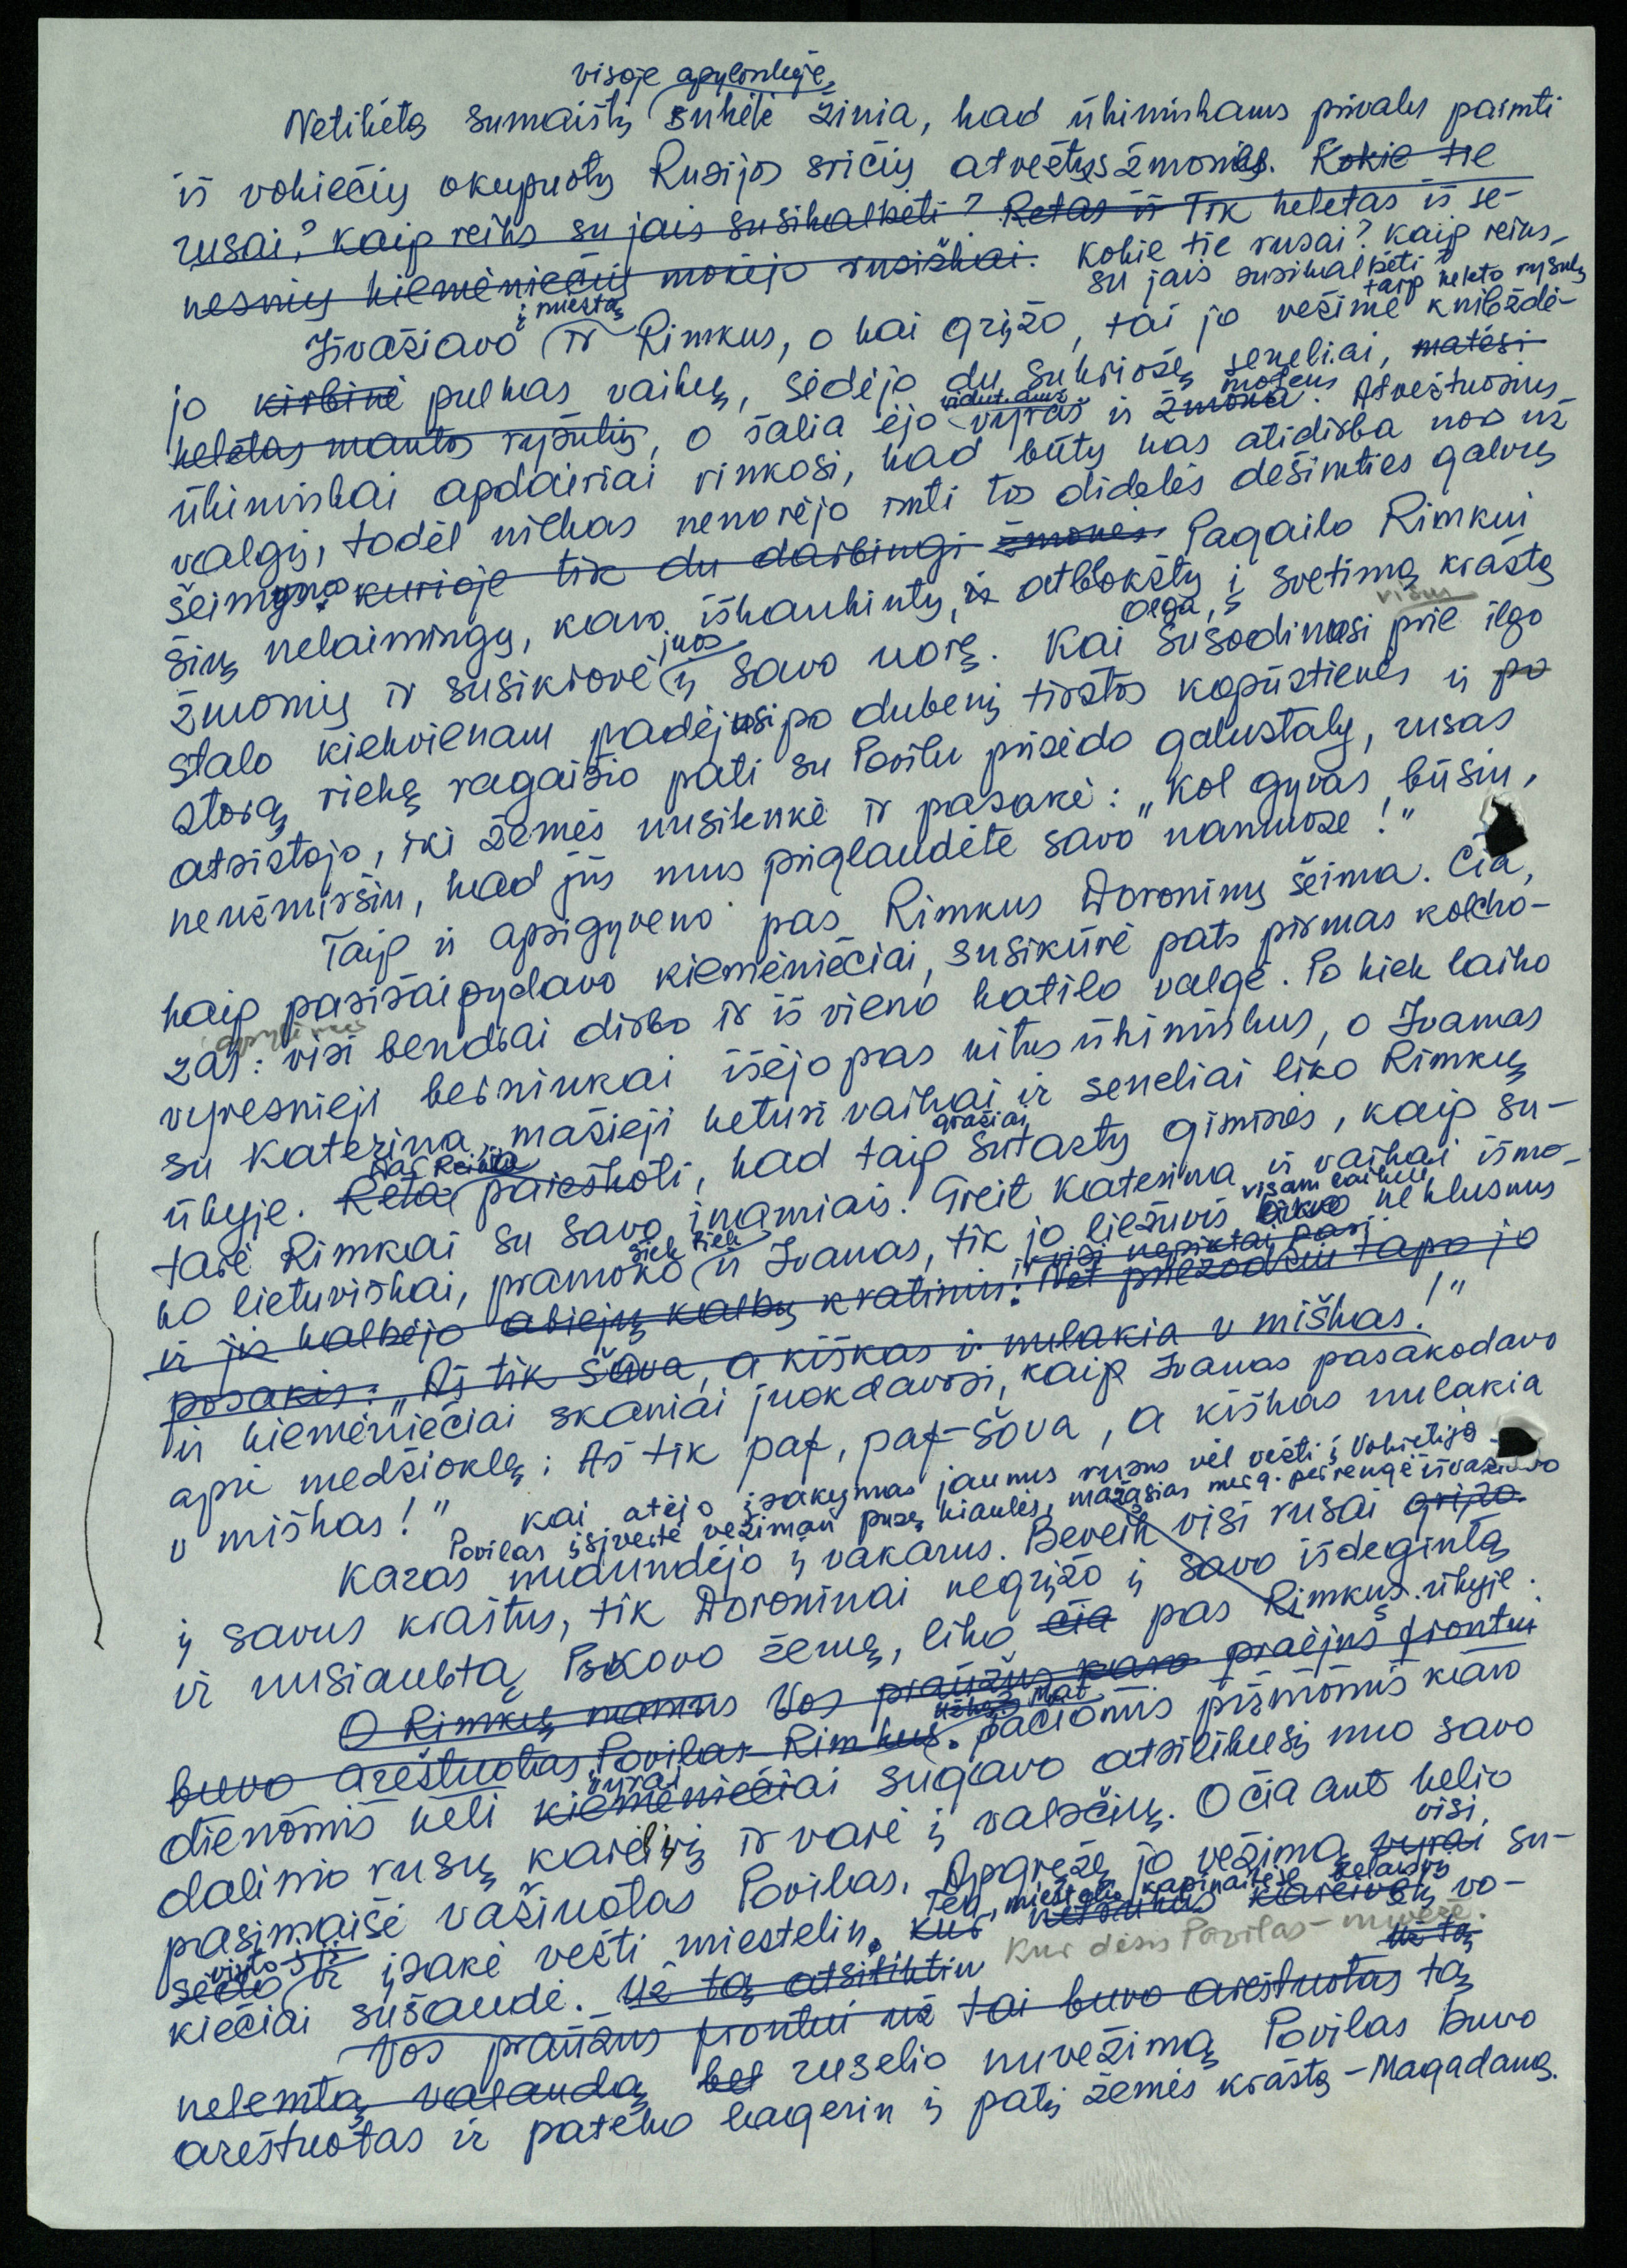 visoje apylinkėje,
Netikėtą sumaištį sukėlė žinia, kad ūkininkams privalu paimti
iš vokiečių okupuotų Rusijos sričių atvežtus žmones. Kokie tie
rusai? kaip reiks su jais susikalbėti? Retas iš Tik keletas iš se-
nesnių kiemėniečių mokėjo rusiškai. Kokie tie rusai? Kaip reiks
su jais susikalbėti?
į miestą taip keleto ryšulių
Išvažiavo ir Rimkus, o kai grįžo, tai jo vežime knibždė-
jo kirbinė pulkas vaikų, sėdėjo du sukriošę seneliai, matėsi
keletas mantos ryšulių, o šalia ėjo vyras ir žmona. Atvežtuosius
vidut. amž. moteris
ūkininkai apdairiai rinkosi, kad būtų kas atidirba nors už
valgį, todėl niekas nenorėjo imti tos didelės dešimties galvų
šeimynos kurioje tik du darbingi žmonės. Pagailo Rimkui
šių nelaimingų, karo iškankintų, ir atblokštų į svetimą kraštą
žmonių ir susikrovė juos į savo norą. Kai Olga, susodinusi visus prie ilgo
stalo kiekvienam padėjusi po dubenį tirštos kopūstienės ir po
storą riekę ragaišio pati su Povilu prisėdo galustaly, rusas
atsistojo, iki žemės nusilenkė ir pasakė: „Kol gyvas būsiu,
neužmiršiu, kad jūs mus priglaudėte savo namuose!“
Taip ir apsigyveno pas Rimkus Doroninų šeima. Čia,
kaip pasišaipydavo kiemėniečiai, susikūrė pats pirmas kolcho-
zas: visi bendrai dirbo ir iš vieno katilo valgė. Po kiek laiko
vyresnieji berniukai išėjo pas kitus ūkininkus, o Ivanas
su Katerina, mažieji keturi vaikai ir seneliai liko Rimkų
ūkyje. Reta paieškoti, kad taip gražiai sutartų giminės, kaip su-
tarė Rimkai su savo įnamiais. Greit Katerina ir vaikai išmo-
ko lietuviškai, pramoko šiek tiek ir Ivanas, tik jo liežuvis liko visam laikui neklusnus
ir jis kalbėjo abiejų kalbų kratiniu. Net priežodžiu tapo jo
visi nepiktai pasi
posakis: „Aš tik šova, a kiškas i nulakia v miškas!“
ir kiemėniečiai skaniai juokdavosi, kaip Ivanas pasakodavo
apie medžioklę: Aš tik paf, paf-šova, a kiškas nulakia
v miškas!“ Kai atėjo įsakymas jaunus rusus vėl vežti į Vokietiją
Povilas įsivertė vežiman pusę kiaulės,
Karas nudundėjo į vakarus. Beveik visi rusai grįžo
į savus kraštus, tik Doroninai negrįžo į savo išdegintą
ir nusiaubtą Pskovo žemę, liko čia pas Rimkus ūkyje.
O Rimkų namus Vos praūžus karo praėjus frontui
buvo areštuotas Povilas Rimkus. Mat pačiomis pirmomis karo
dienomis keli kiemėniečiai vyrai sugavo atsilikusį nuo savo
dalinio rusų kareivį ir varė į valsčių. O čia ant kelio
pasimaišė važiuotas Povilas. Apgręžę jo vežimą vyrai visi su-
sėdo ir įsakė vežti miestelin, kur
Ten, miestelio kapinaitėse belaisvį vo-
kiečiai sušaudė. Už tą atsitiktin Kur dėsis Povilas – nuvežė.
Vos praūžus frontui už tai buvo areštuotas už tą tą
nelemtą valandą bet ruselio nuvežimą Povilas buvo
areštuotas ir pateko lagerin į patį žemės kraštą – Magadaną.